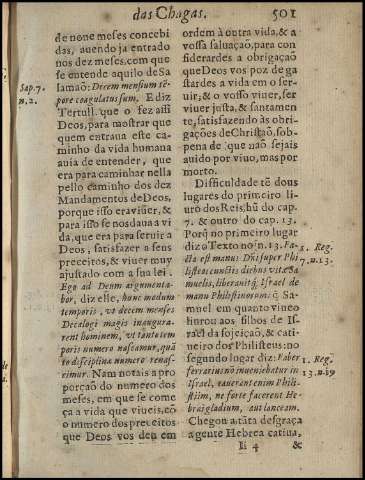 das Chagas. 501
de noue meses concebi
das, auendo ja entrado
nos dez meses, com que
se entende aquilo de Sa
Sap. 7.
n. 2.
lamaõ: Decem mensium tẽ-
pore coagulatus sum. E diz
Tertull. que o fez assi
Deos, para mostrar que
quem entraua este ca-
minho da vida humana
auia de entender, que
era para caminhar nella
pello caminho dos dez
Mandamentos de Deos,
porque isso era viuer, &
para isso se nos daua a vi
da, que era para seruir a
Deos, satisfazer a seus
preceitos, & viuer muy
ajustado com a sua lei.
Ego ad Deum argumenta-
bor, diz elle, hunc modum
temporis, vt decem menses
Decalogi magis inaugura-
rent hominem, vt tanto tem
poris numero nascamur, quã
to disciplinæ numero renas-
cimur. Nam notais a pro
porçaõ do numero dos
meses, em que se come
ça a vida que viueis, cõ
o numero dos preceitos
que Deos vos deu em
ordem à outra vida, & a
vossa saluaçaõ, para con
siderardes a obrigaçaõ
que Deos vos poz de ga
stardes a vida em o ser-
uir; & o vosso viuer, ser
viuer justa, & santamen
te, satisfazendo às obri-
gações de Christaõ, sob-
pena de que naõ sejais
auido por viuo, mas por
morto.
Difficuldade tẽ dous
lugares do primeiro li-
uro dos Reis, hũ do cap.
7. & outro do cap. 13.
Porq̃ no primeiro lugar
diz o Texto no n. 13. Fa-
1. Reg.
7. n. 13.
cta est manus Dñi super Phi
listæos cunctis diebus vitæ Sa
muelis, liberauitq; Israel de
manu Philistinorum: q̃ Sa-
muel em quanto viueo
liurou aos filhos de Is-
rael da sojeiçaõ, & cati-
ueiro dos Philisteus: no
segundo lugar diz: Faber
1. Reg.
13. n. 19
ferrarius nõ inueniebatur in
Israel, cauerant enim Phili-
stiim, ne forte facerent He-
bræi gladium, aut lanceam.
Chegou a tãta desgraça
a gente Hebrea catiua,
Ii 4 &